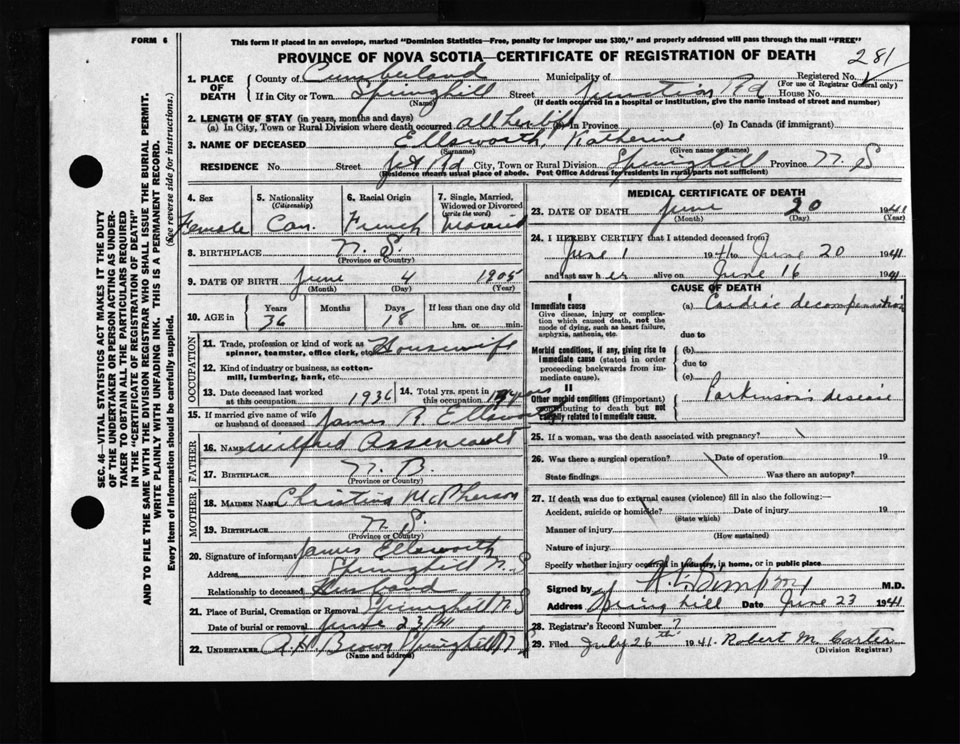 FORM 6
This form if placed in an envelope, marked "Dominion Statistics—Free, penalty for improper use $300," and properly addressed will pass through the mail "FREE"
PROVINCE OF NOVA SCOTIA—CERTIFICATE OF REGISTRATION OF DEATH
281
1. PLACE OF DEATH
County of Cumberland Municipality of Registered No.
(For use of Registrar General only)
If in City or Town Springhill Street Junction Rd House No.
(Name) (If death occurred in a hospital or institution, give the name instead of street and number)
2. LENGTH OF STAY (in years, months and days)
(a) In City, Town or Rural Division where death occurred all her life (b) in Province (c) In Canada (if immigrant)
3. NAME OF DECEASED Ellsworth, Katherine
(Surname) (Given name or names)
RESIDENCE No. Street Jct Rd City, Town or Rural Division Springhill Province N. S
(Residence means usual place of abode. Post Office Address for residents in rural parts not sufficient)
4. Sex
Female
5. Nationality (Citizenship)
Can.
6. Racial Origin
French
7. Single, Married, Widowed or Divorced (write the word)
Married
8. BIRTHPLACE N. S.
(Province or Country)
9. DATE OF BIRTH June 4 1905
(Month) (Day) (Year)
10. AGE in Years Months Days If less than one day old
36 18 hrs. or min.
OCCUPATION
11. Trade, profession or kind of work as spinner, teamster, office clerk, etc. Housewife
12. Kind of industry or business, as cotton-mill, lumbering, bank, etc.
13. Date deceased last worked at this occupation 1936
14. Total yrs. spent in this occupation years
15. If married give name of wife or husband of deceased James R. Ellsworth
FATHER
16. Name Wilfred
17. BIRTHPLACE N. B.
(Province or Country)
MOTHER
18. MAIDEN NAME Christina McPherson
19. BIRTHPLACE N. S.
(Province or Country)
20. Signature of informant James Ellsworth
Address Springhill N. S
Relationship to deceased Husband
21. Place of Burial, Cremation or Removal Springhill N S
Date of burial or removal June 23/41
22. UNDERTAKER A. H. Brown Springhill N S
(Name and address)
MEDICAL CERTIFICATE OF DEATH
23. DATE OF DEATH June 20 1941
(Month) (Day) (Year)
24. I HEREBY CERTIFY that I attended deceased from
June 1 1941 to June 20 1941
and last saw her alive on June 16 1941
CAUSE OF DEATH
I
Immediate cause
Give disease, injury or complication which caused death, not the mode of dying, such as heart failure, asphyxia, asthenia, etc.
(a) Cardiac decompensation
due to
Morbid conditions, if any, giving rise to immediate cause (stated in order proceeding backwards from immediate cause).
(b)
due to
(c)
II
Other morbid conditions (if important) contributing to death but not causally related to immediate cause.
Parkinson's disease
25. If a woman, was the death associated with pregnancy?
26. Was there a surgical operation? Date of operation 19
State findings Was there an autopsy?
27. If death was due to external causes (violence) fill in also the following:—
Accident, suicide or homicide? Date of injury 19
(State which)
Manner of injury
(How sustained)
Nature of injury
Specify whether injury occurred in industry, in home, or in public place
Signed by M.D.
Address Springhill Date June 23 1941
28. Registrar's Record Number 7
29. Filed July 26th 1941. Robert M. Carter
(Division Registrar)
SEC. 46—VITAL STATISTICS ACT MAKES IT THE DUTY OF THE UNDERTAKER OR PERSON ACTING AS UNDERTAKER TO OBTAIN ALL THE PARTICULARS REQUIRED IN THE "CERTIFICATE OF REGISTRATION OF DEATH"
AND TO FILE THE SAME WITH THE DIVISION REGISTRAR WHO SHALL ISSUE THE BURIAL PERMIT.
WRITE PLAINLY WITH UNFADING INK. THIS IS A PERMANENT RECORD.
Every item of information should be carefully supplied. (See reverse side for instructions.)